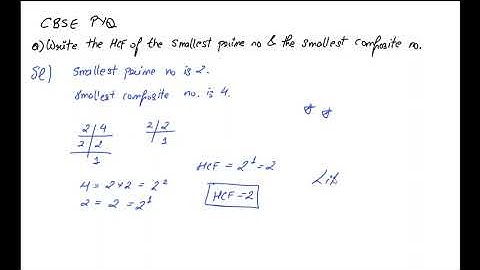 CBSE PYQ
Q) Write the HCF of the smallest prime no & the smallest composite no.
Sol) Smallest prime no is 2.
Smallest composite no. is 4.
2 | 4
2 | 2
1
2 | 2
1
4 = 2×2 = 2²
2 = 2 = 2¹
HCF = 2¹ = 2
HCF = 2